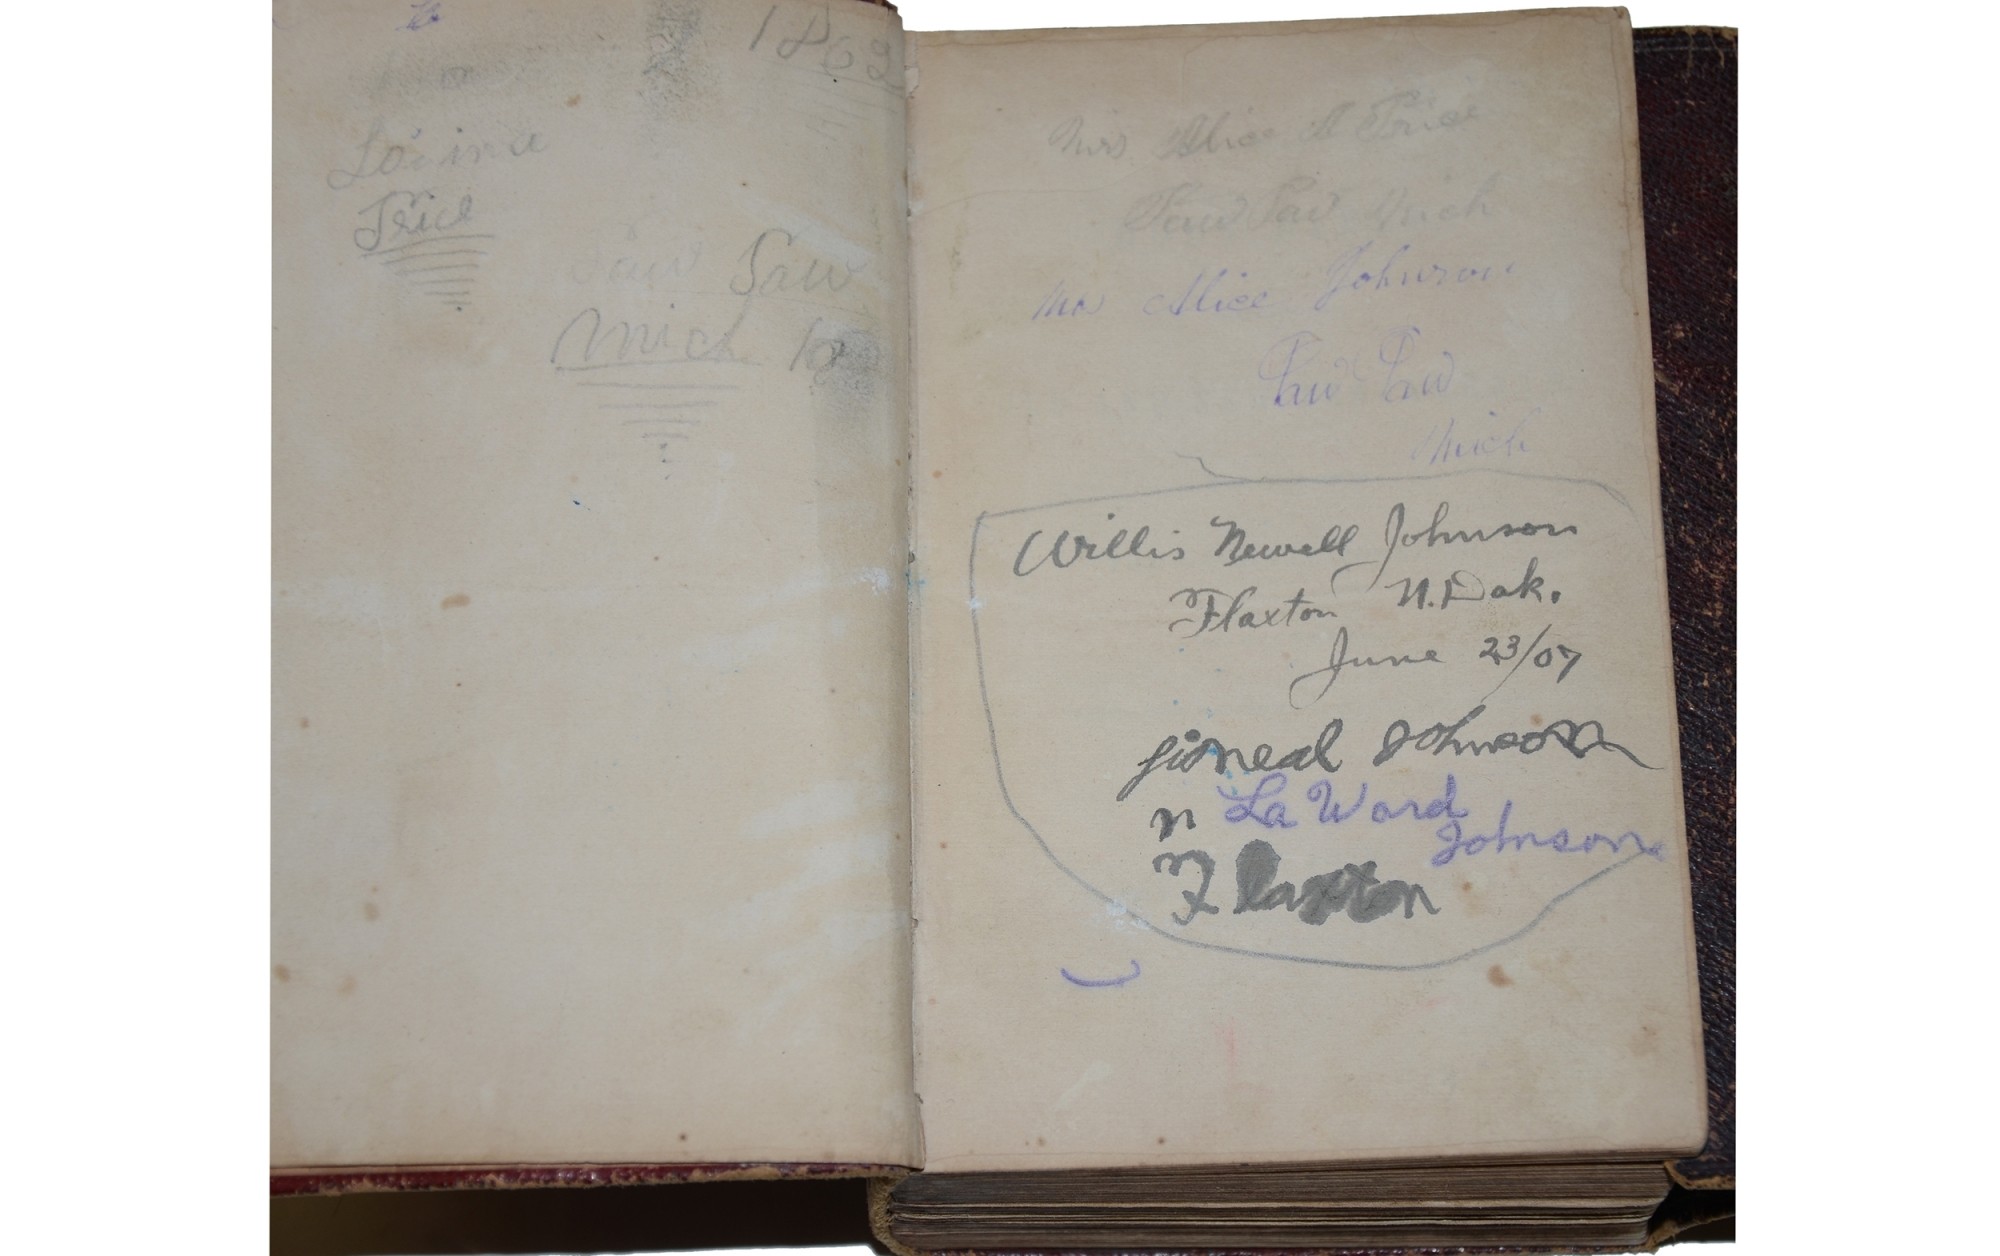 1869
Price
Paw Paw
Mich 18
Mrs Alice A Price
Paw Paw Mich
Mrs Alice Johnson
Paw Paw
Mich
Willis Newell Johnson
Flaxton N. Dak.
June 23/07
Johnson
n La Ward
Johnson
Flaxton